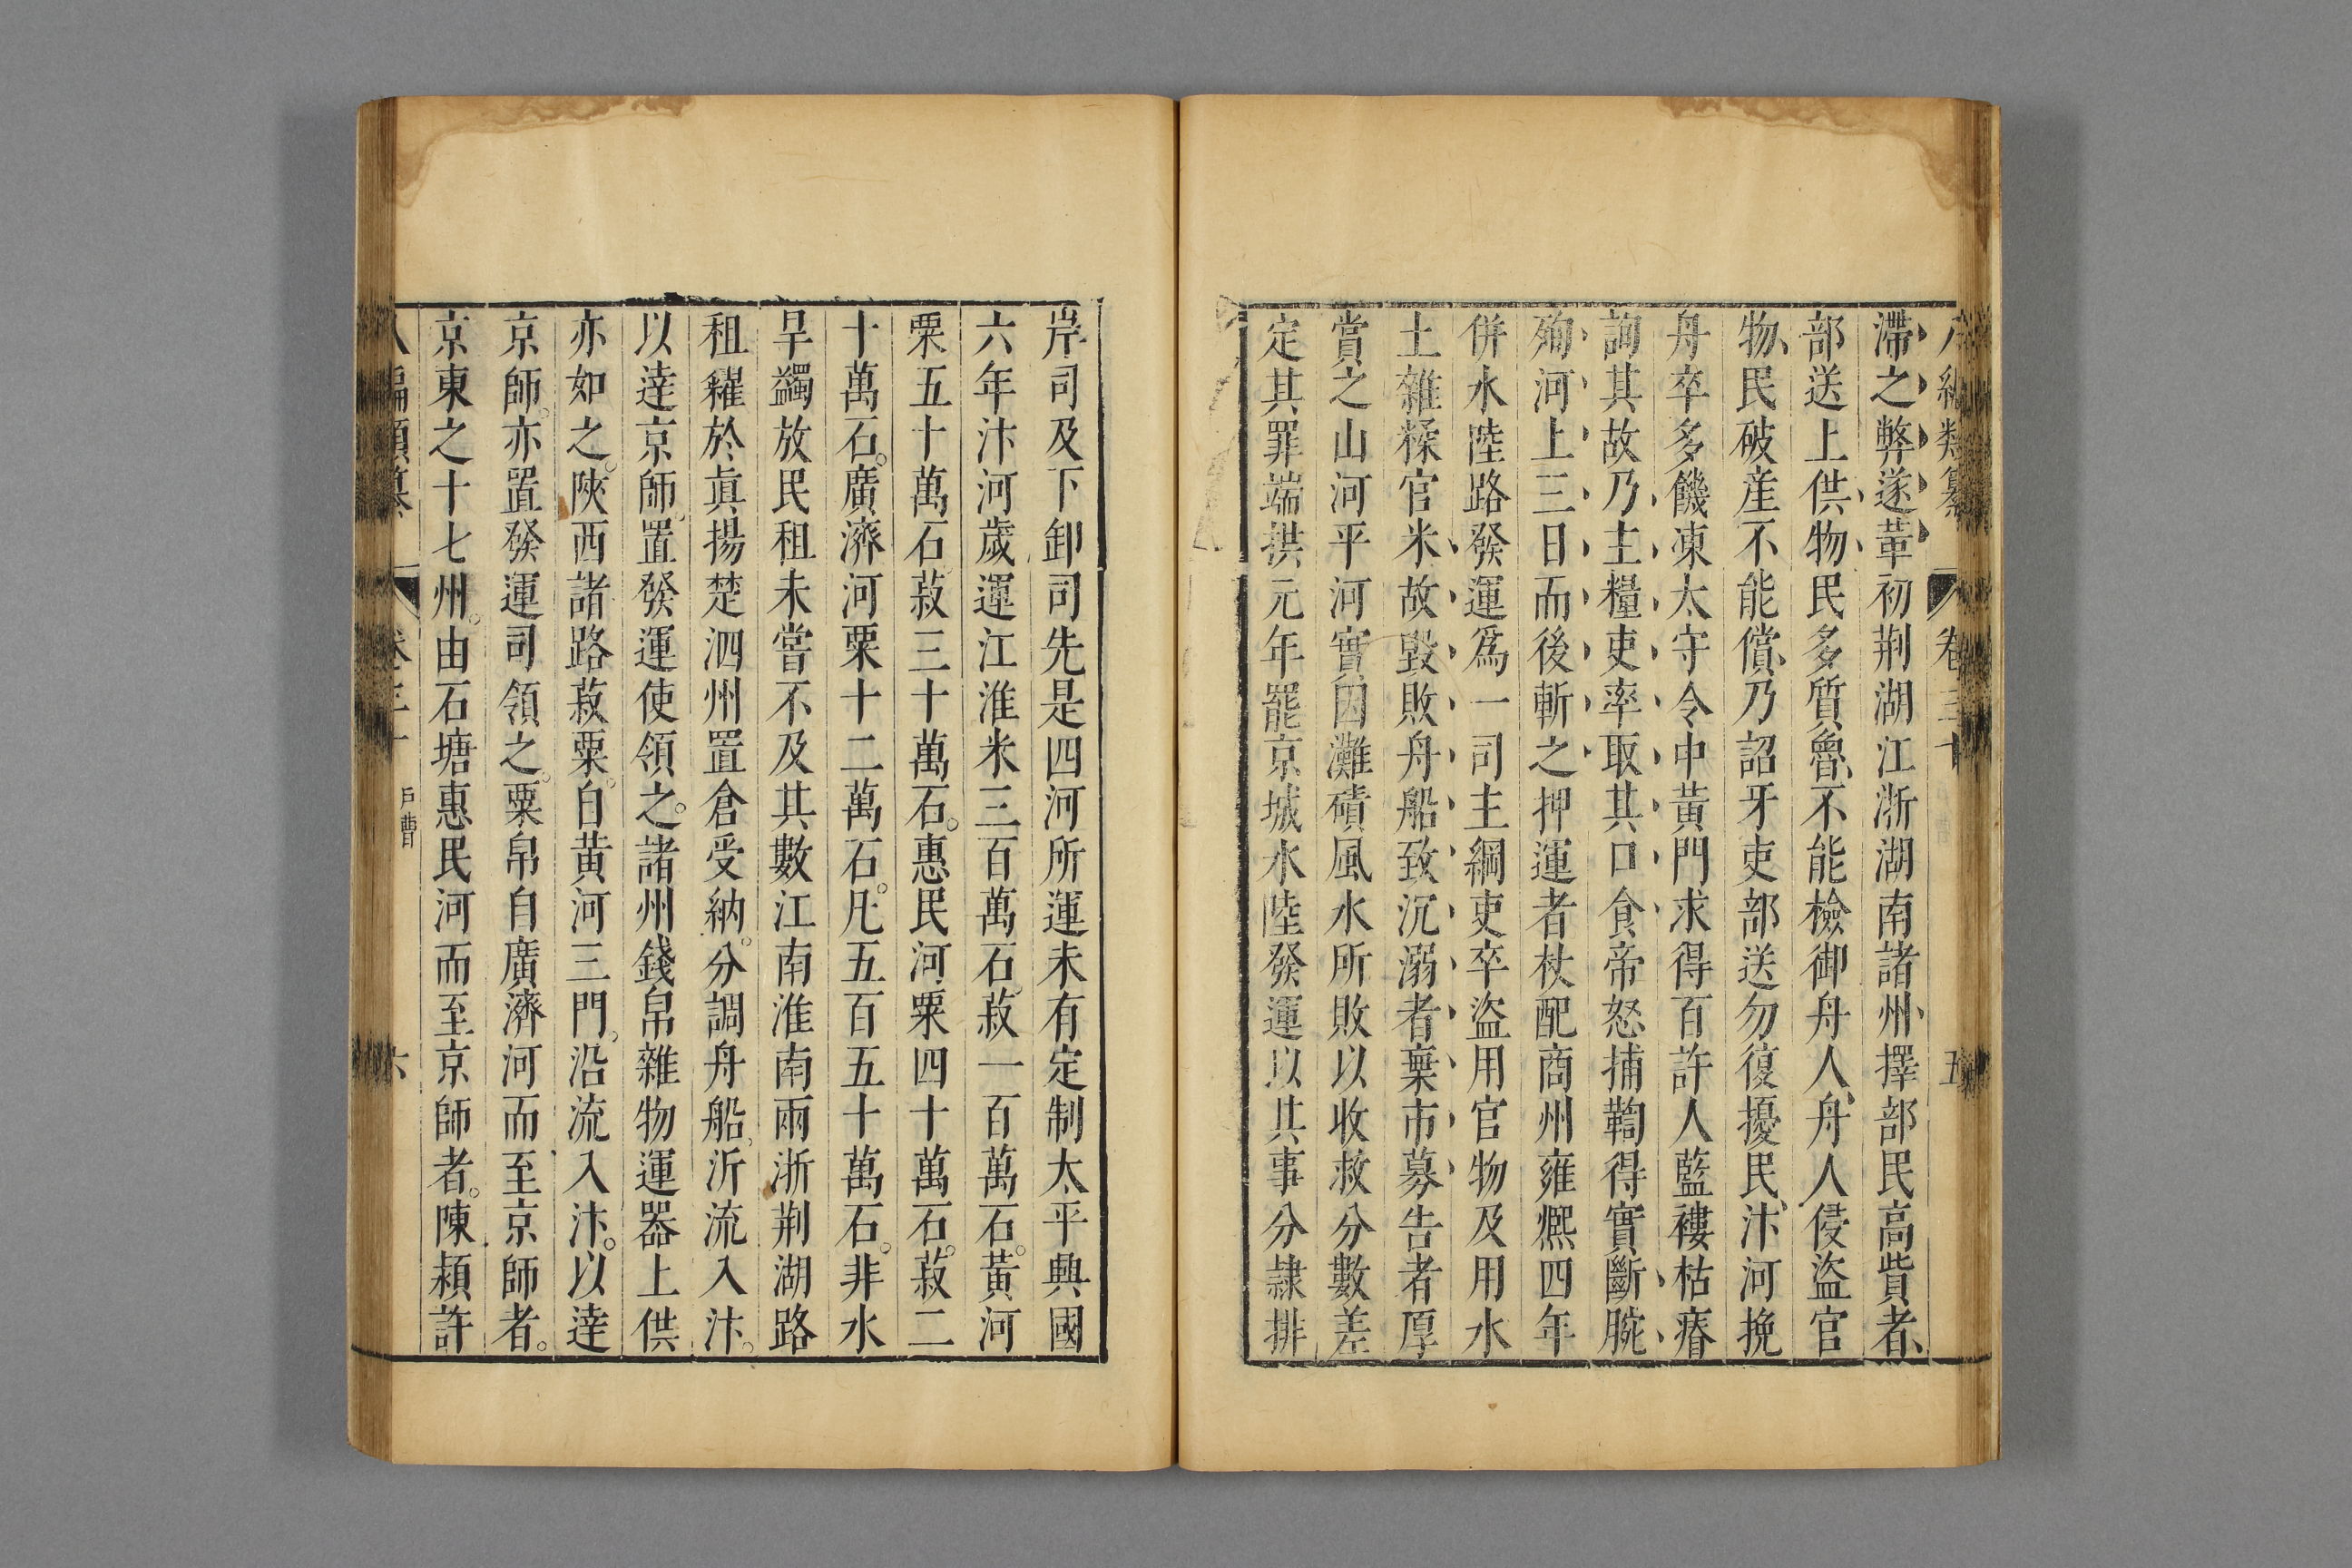 八編類纂 卷三十 五
滯之弊遂革初荆湖江浙湖南諸州擇部民高貲者
部送上供物民多質魯不能檢御舟人舟人侵盜官
物民破産不能償乃詔牙吏部送勿復擾民汴河挽
舟卒多饑凍太守令中黃門求得百許人藍褸枯瘠
詢其故乃主糧吏率取其口食帝怒捕鞫得實斷腕
殉河上三日而後斬之押運者杖配商州雍熈四年
併水陸路發運爲一司主綱吏卒盜用官物及用水
土雜糅官米故毀敗舟船致沉溺者棄市募告者厚
賞之山河平河實因灘磧風水所敗以收救分數差
定其罪端拱元年罷京城水陸發運以其事分隷排
岸司及下卸司先是四河所運未有定制太平興國
六年汴河歲運江淮米三百萬石。菽一百萬石。黃河
粟五十萬石。菽三十萬石。惠民河粟四十萬石。菽二
十萬石。廣濟河粟十二萬石。凡五百五十萬石。非水
旱蠲放民租未嘗不及其數江南淮南兩浙荆湖路
租糴於眞揚楚泗州置倉受納。分調舟船。泝流入汴。
以達京師。置發運使領之。諸州錢帛雜物運器上供
亦如之。陝西諸路菽粟。自黄河三門。沿流入汴。以達
京師。亦置發運司領之。粟帛自廣濟河而至京師者。
京東之十七州。由石塘惠民河而至京師者。陳潁許
八編類纂 卷三十 戸曹 六